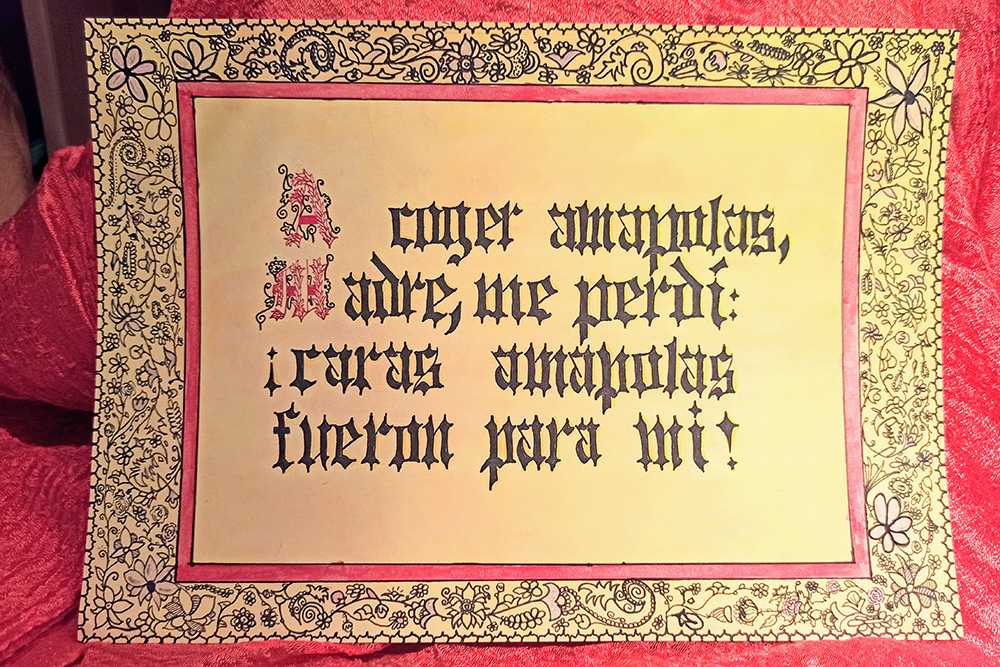 A coger amapolas,
Madre, me perdí:
¡caras amapolas
fueron para mi!